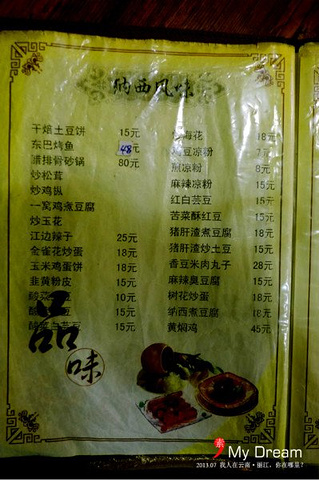 纳西风味
干焙土豆饼 15元
东巴烤鱼 48元
腊排骨砂锅 80元
炒松茸
炒鸡纵
一窝鸡煮豆腐
炒玉花
江边辣子 25元
金雀花炒蛋 18元
玉米鸡蛋饼 18元
韭黄粉皮 15元
10元
15元
15元
海花 18元
豆凉粉 7元
凉粉 8元
麻辣凉粉 15元
红白芸豆 15元
苦菜酥红豆 15元
猪肝渣煮豆腐 18元
猪肝渣炒土豆 18元
香豆米肉丸子 28元
麻辣臭豆腐 18元
树花炒蛋 18元
纳西煮豆腐 18元
黄焖鸡 45元
品味
索 My Dream
2013.07 我人在云南·丽江，你在哪里？